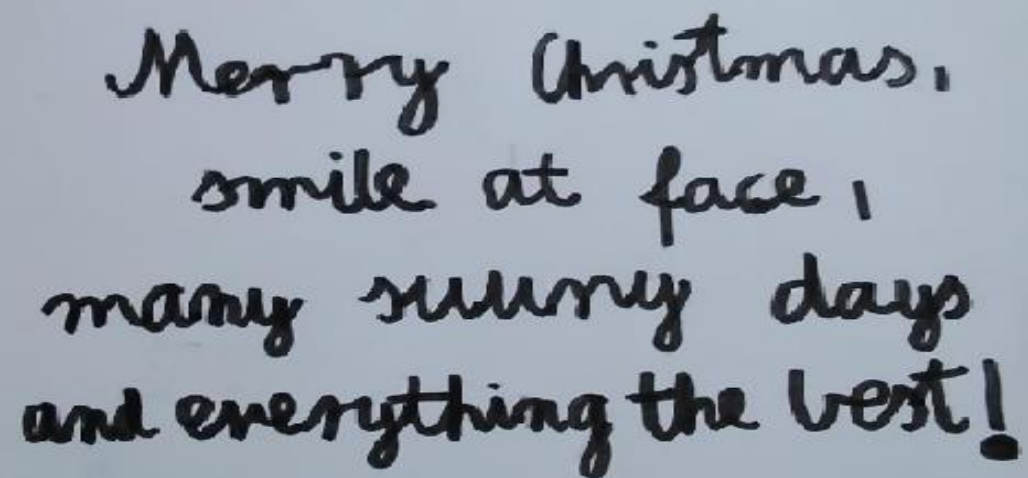 Merry Christmas,
smile at face,
many suuny days
and everything the best!